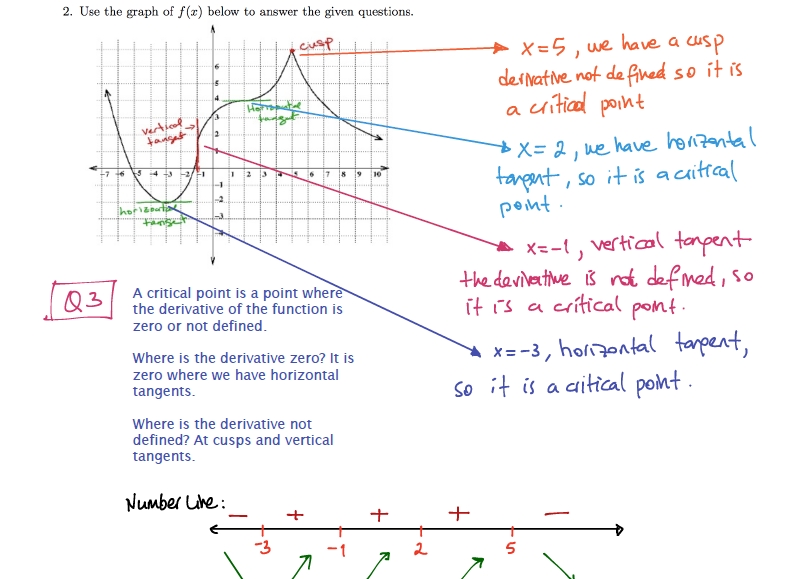 2. Use the graph of f(x) below to answer the given questions.
cusp
x=5, we have a cusp
derivative not defined so it is
a critical point
6
5
4
3
2
1
Horizontal
tangent
vertical
tangent
x= 2, we have horizontal
tangent, so it is a critical
point.
-7 -6 -5 -4 -3 -2 -1 1 2 3 4 5 6 7 8 9 10
-1
-2
-3
-4
horizontal
tangent
x=-1, vertical tangent
the derivative is not defined, so
it is a critical point.
Q3
A critical point is a point where
the derivative of the function is
zero or not defined.
x=-3, horizontal tangent,
so it is a critical point.
Where is the derivative zero? It is
zero where we have horizontal
tangents.
Where is the derivative not
defined? At cusps and vertical
tangents.
Number Line:
− + + + −
-3 -1 2 5